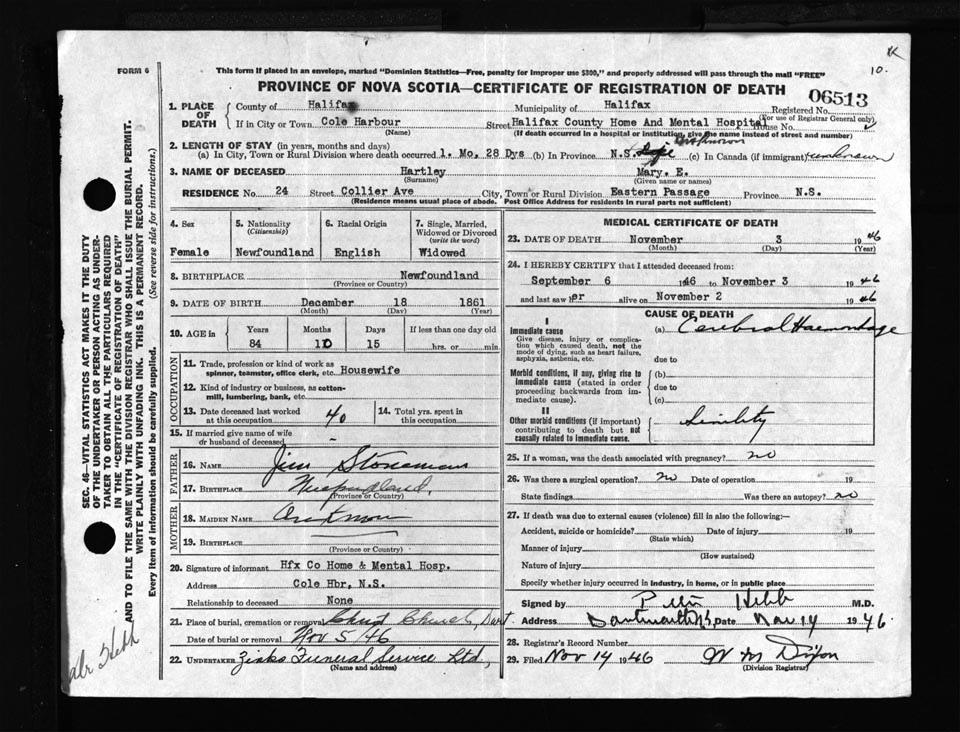 K
10.
FORM 6
This form if placed in an envelope, marked "Dominion Statistics—Free, penalty for improper use $300," and properly addressed will pass through the mail "FREE"
PROVINCE OF NOVA SCOTIA—CERTIFICATE OF REGISTRATION OF DEATH
06513
1. PLACE OF DEATH
County of Halifax Municipality of Halifax Registered No.
(For use of Registrar General only)
If in City or Town Cole Harbour Street Halifax County Home And Mental Hospital House No.
(Name) (If death occurred in a hospital or institution, give the name instead of street and number)
2. LENGTH OF STAY (in years, months and days)
unknown
(a) In City, Town or Rural Division where death occurred 1. Mo. 28 Dys (b) In Province N.S. (c) In Canada (if immigrant) unknown
3. NAME OF DECEASED Hartley Mary. E.
(Surname) (Given name or names)
RESIDENCE No. 24 Street Collier Ave City, Town or Rural Division Eastern Passage Province N.S.
(Residence means usual place of abode. Post Office Address for residents in rural parts not sufficient)
4. Sex
Female
5. Nationality
(Citizenship)
Newfoundland
6. Racial Origin
English
7. Single, Married, Widowed or Divorced
(write the word)
Widowed
8. BIRTHPLACE Newfoundland
(Province or Country)
9. DATE OF BIRTH December 18 1861
(Month) (Day) (Year)
10. AGE in
Years Months Days If less than one day old
84 10 15 hrs. or min.
OCCUPATION
11. Trade, profession or kind of work as
spinner, teamster, office clerk, etc. Housewife
12. Kind of industry or business, as cotton-
mill, lumbering, bank, etc.
13. Date deceased last worked
at this occupation 40
14. Total yrs. spent in
this occupation
15. If married give name of wife
or husband of deceased –
FATHER
16. NAME Jim Stoneman
17. BIRTHPLACE Newfoundland,
(Province or Country)
MOTHER
18. MAIDEN NAME
19. BIRTHPLACE
(Province or Country)
20. Signature of informant Hfx Co Home & Mental Hosp.
Address Cole Hbr, N.S.
Relationship to deceased None
21. Place of burial, cremation or removal Christ Church, Dart
Date of burial or removal Nov 5/46
22. UNDERTAKER Zinks Funeral Service Ltd,
(Name and address)
MEDICAL CERTIFICATE OF DEATH
23. DATE OF DEATH November 3 1946
(Month) (Day) (Year)
24. I HEREBY CERTIFY that I attended deceased from:
September 6 1946 to November 3 1946
and last saw her alive on November 2 1946
CAUSE OF DEATH
I
Immediate cause (a) Cerebral Haemorrhage
Give disease, injury or complica-
tion which caused death, not the
mode of dying, such as heart failure,
asphyxia, asthenia, etc. due to
Morbid conditions, if any, giving rise to (b)
immediate cause (stated in order due to
proceeding backwards from im-
mediate cause). (c)
II
Other morbid conditions (if important)
contributing to death but not
causally related to immediate cause. Senility
25. If a woman, was the death associated with pregnancy? no
26. Was there a surgical operation? no Date of operation 19
State findings Was there an autopsy? no
27. If death was due to external causes (violence) fill in also the following:—
Accident, suicide or homicide? Date of injury 19
(State which)
Manner of injury
(How sustained)
Nature of injury
Specify whether injury occurred in industry, in home, or in public place
Signed by Peter Hebb M.D.
Address Dartmouth N.S. Date Nov 14 1946
28. Registrar's Record Number
29. Filed Nov 14 1946 W M Dixon
(Division Registrar)
SEC. 46—VITAL STATISTICS ACT MAKES IT THE DUTY
OF THE UNDERTAKER OR PERSON ACTING AS UNDER-
TAKER TO OBTAIN ALL THE PARTICULARS REQUIRED
IN THE "CERTIFICATE OF REGISTRATION OF DEATH"
AND TO FILE THE SAME WITH THE DIVISION REGISTRAR WHO SHALL ISSUE THE BURIAL PERMIT.
WRITE PLAINLY WITH UNFADING INK. THIS IS A PERMANENT RECORD.
Every item of information should be carefully supplied. (See reverse side for instructions.)
Dr Hebb